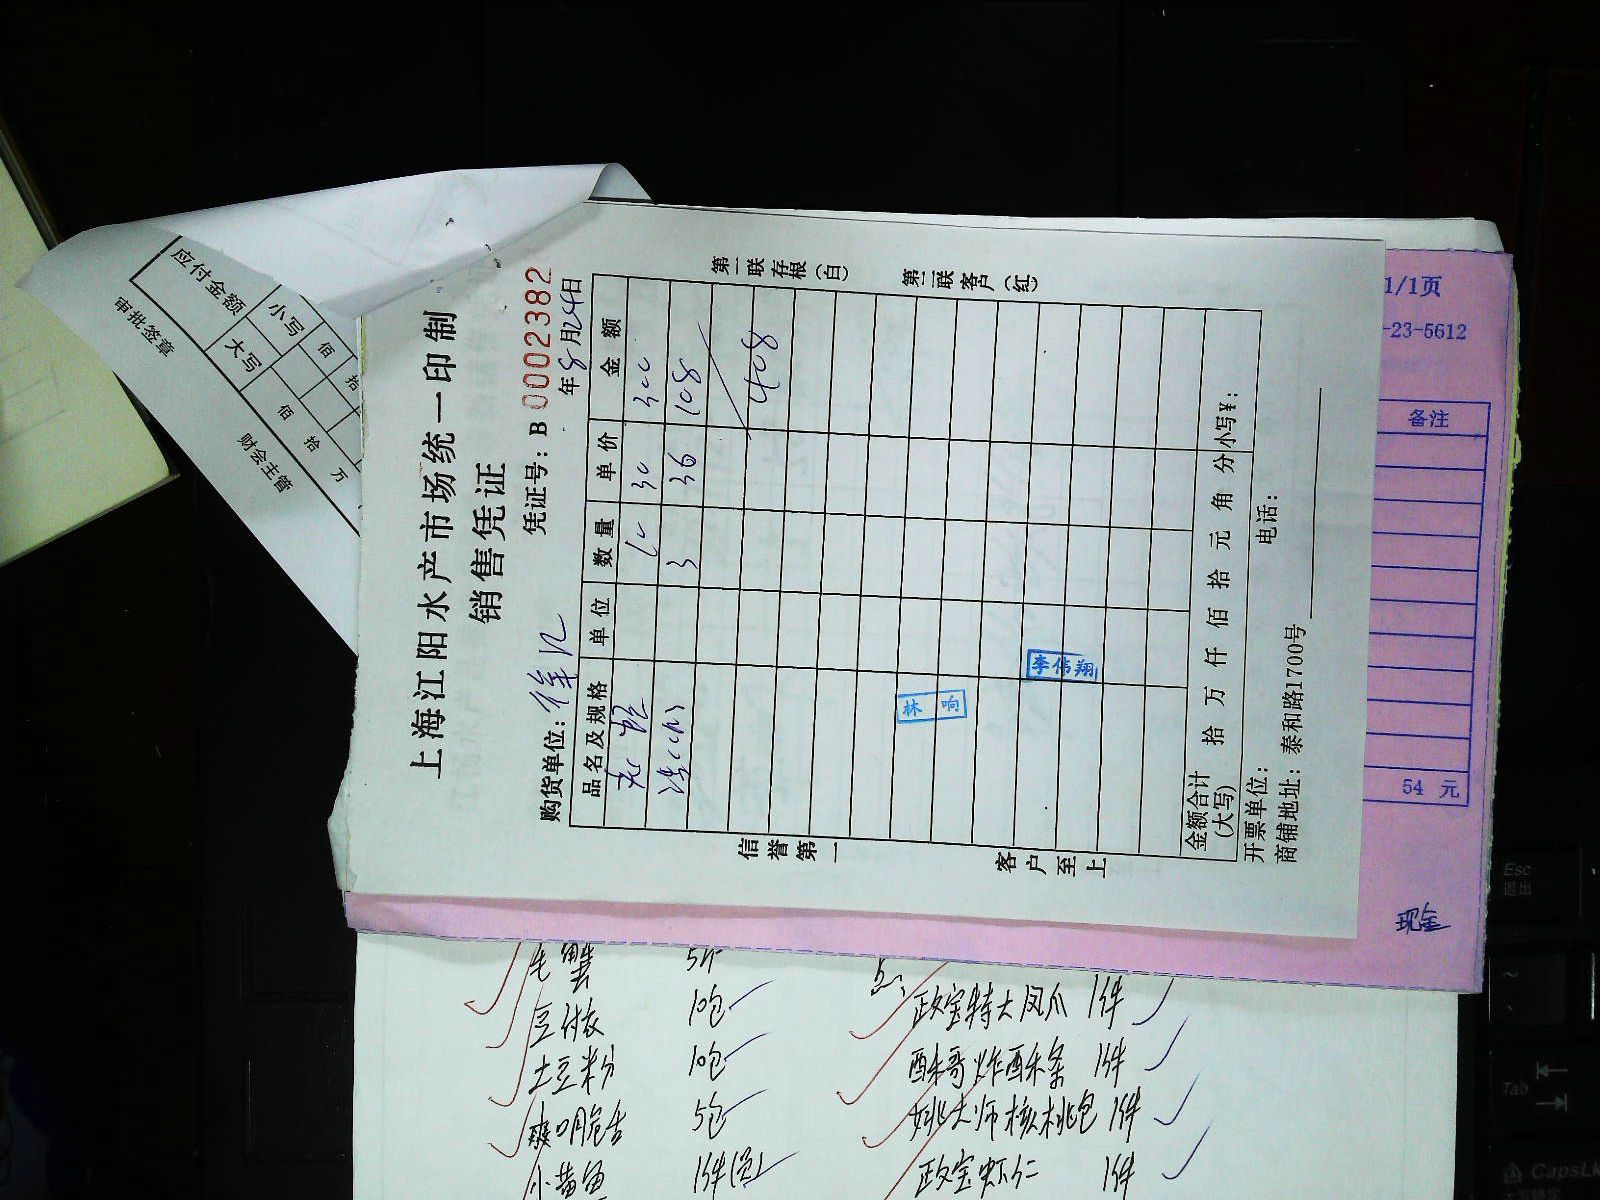 上海江阳水产市场统一印制
销售凭证
凭证号：B 0002382
购货单位：
年8月24日
品名及规格 单位 数量 单价 金额
10 30 300
3 36 108
408
信誉第一
客户至上
第一联存根（白）
第二联客户（红）
林响
李伟翔
金额合计（大写） 拾 万 仟 佰 拾 元 角 分 小写¥：
开票单位：
电话：
商铺地址：泰和路1700号
应付金额
小写
大写
佰 拾
佰 拾 万
审批签章
财会主管
1/1页
-23-5612
备注
54 元
现金
毛蟹 5个
豆付衣 10包
土豆粉 10包
5包
小黄鱼 1件
政宝特大凤爪 1件
酥哥炸酥条 1件
姚大师核桃包 1件
政宝虾仁 1件
Esc
退出
Tab
CapsLk